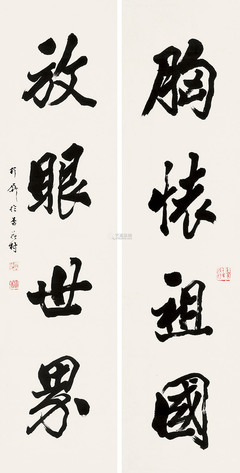 胸懷祖國
放眼世界